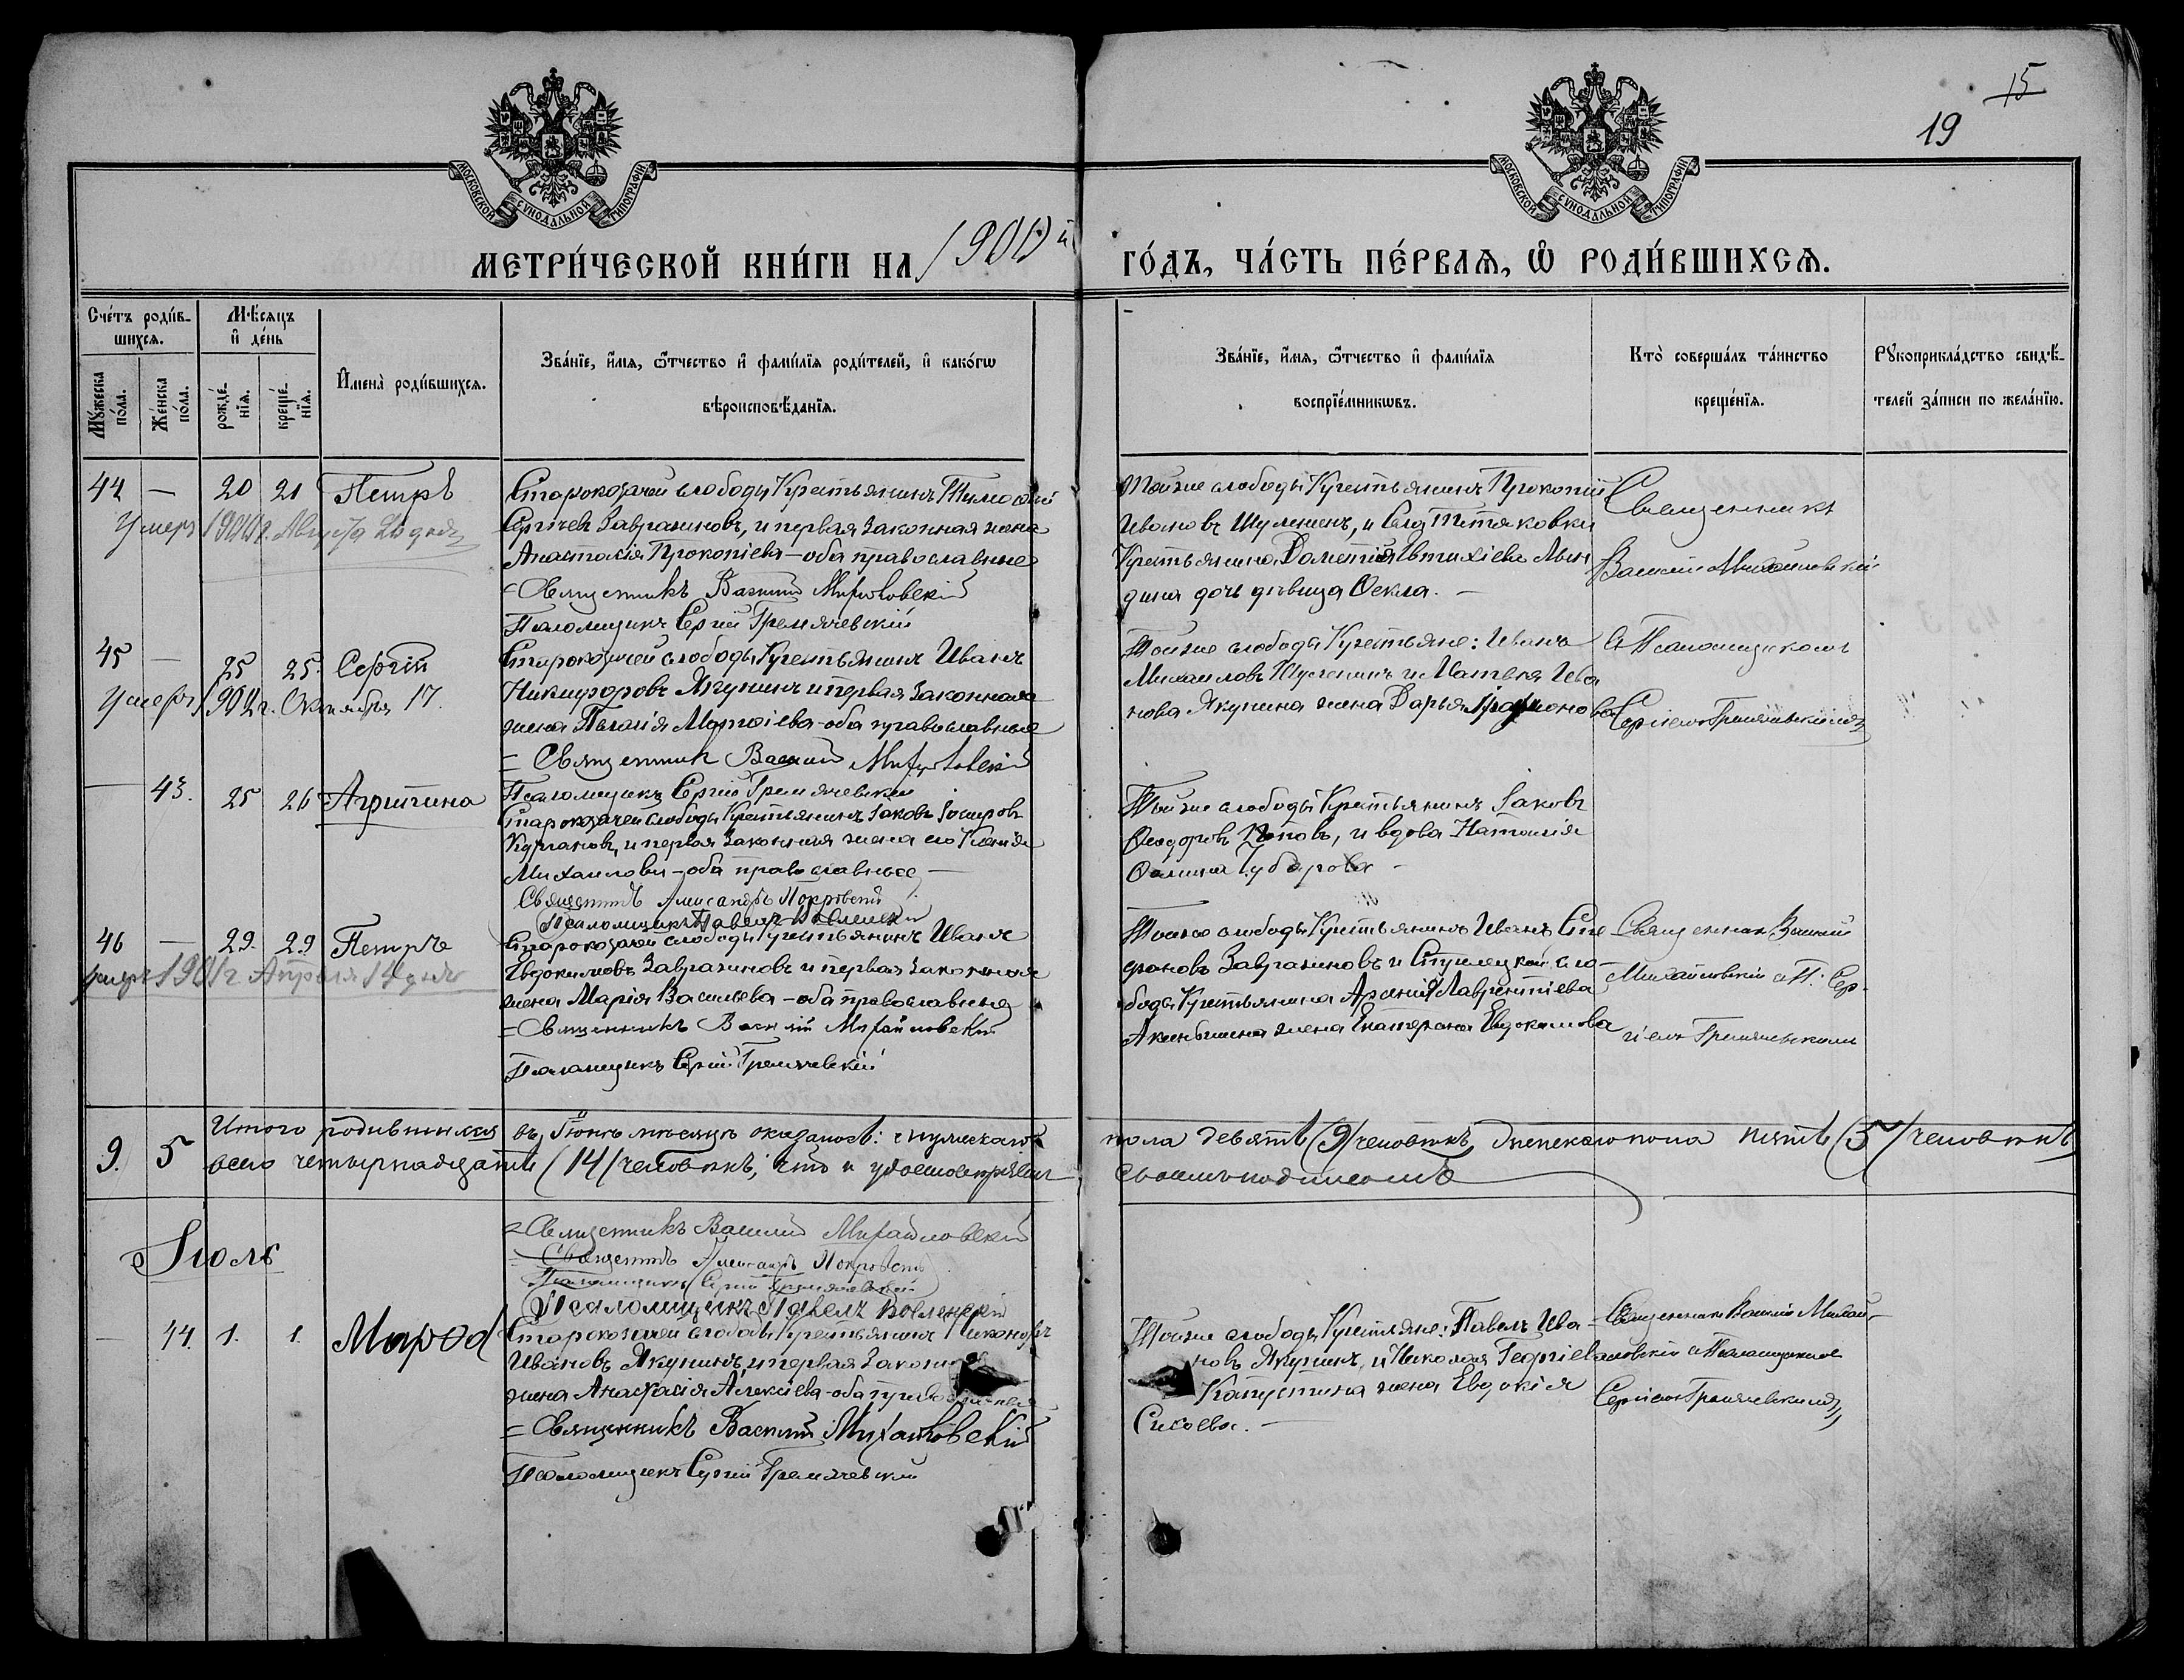 15
19
МОСКОВСКОЙ СѴНОДАЛЬНОЙ ТИПОГРАФІИ
МОСКОВСКОЙ СѴНОДАЛЬНОЙ ТИПОГРАФІИ
МЕТРИ́ЧЕСКОЙ КНИ́ГИ НА 1900 й ГО́ДЪ, ЧА́СТЬ ПЕ́РВАѦ, Ѽ РОДИ́ВШИХСѦ.
Сче́тъ роди́в-
шихсѧ.
Мꙋ́жеска по́ла.
Же́нска по́ла.
Мѣ́сѧцъ
и҆ де́нь
рожде́-
нїѧ.
креще́-
нїѧ.
И҆мена̀ роди́вшихсѧ.
Зва́нїе, и҆́мѧ, ѻ҆́тчество и҆ фами́лїѧ роди́телей, и҆ како́гѡ
вѣроисповѣ́данїѧ.
Зва́нїе, и҆́мѧ, ѻ҆́тчество и҆ фами́лїѧ
воспрїе́мникѡвъ.
Кто̀ соверша́лъ та́инство
креще́нїѧ.
Рꙋкоприкла́дство свидѣ́-
телей за́писи по жела́нїю.
44 — 20 21 Петръ
Умеръ 190 г. Августа 20 дня
Староказачей слободы Крестьянинъ Тимофей
Сергіевъ Завражиновъ, и первая законная жена
Анастасія Прокопіева – оба православные
Священникъ Василій Михайловскій
Псаломщикъ Сергій Гремячевскій
Тойже слободы Крестьянинъ Прокопій
Ивановъ Шуленинъ, и
Крестьянина Евтихіева
дочь дѣвица Ѳекла. –
Священникъ
Василій Михайловскій
45 — 25 25. Сергій
Умеръ 190 г. Октября 17.
Староказачей слободы Крестьянинъ Иванъ
Никифоровъ Якунинъ и первая законная
жена Пелагія – оба православные
= Священникъ Василій Михайловскій
Псаломщикъ Сергій Гремячевскій
Тойже слободы Крестьяне: Иванъ
Михаиловъ Шуленинъ и Матвея Ива
нова Якунина жена Дарья
съ Псаломщикомъ
Сергіемъ Гремячевскимъ
— 43. 25 26 Агрипина
Староказачей слободы Крестьянинъ Іаковъ Іосифовъ
Кургановъ, и первая законная жена его Ксенія
Михаилова – оба православные –
Священникъ Александръ Покровскій
Псаломщикъ Павелъ
Тойже слободы Крестьянинъ Іаковъ
Ѳеодоровъ Поповъ, и вдова Наталія
Ѳомина Губарева –
46 — 29. 29 Петръ
Умеръ 1901 г Апреля 14 дня
Староказачей слободы Крестьянинъ Иванъ
Евдокимовъ Завражиновъ и первая законная
жена Марія Васильева – оба православные
= Священникъ Василій Михайловскій
Псаломщикъ Сергій Гремячевскій
Тойже слободы Крестьянинъ Иванъ Сте
фановъ Завражиновъ и Стрелецкой сло-
боды Крестьянина Арсенія Лаврентіева
жена Екатерина Евдокимова
Священник Василій
Михайловскій съ П. Сер-
гіемъ Гремячевскимъ
9. 5 Итого родившихся въ Іюнѣ мѣсяцѣ оказалось: мужескаго пола девять (9) человѣкъ, женскаго пола пять (5) человѣкъ
всего четырнадцать (14) человѣкъ; что и удостоверяемъ своимъ подписомъ
Священникъ Василій Михайловскій
= Священникъ Александръ Покровскій
Псаломщикъ Сергій Гремячевскій
Псаломщикъ Павелъ
Іюль
— 44. 1. 1.
Староказачей слободы Крестьянинъ
Ивановъ Якунинъ, и первая законная
жена Анастасія Алексіева – оба православные
= Священникъ Василій Михайловскій
Псаломщикъ Сергій Гремячевскій
Тойже слободы Крестьяне: Павелъ Ива
новъ Якунинъ, и Николая Георгіева
Капустина жена Евдокія
Сисоева. –
Священникъ Василій Михай-
ловскій съ Псаломщикомъ
Сергіемъ Гремячевскимъ